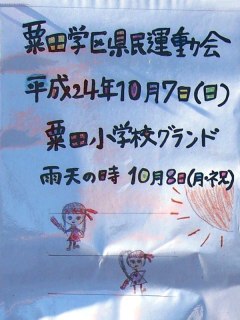 粟田学区県民運動会
平成24年10月7日(日)
粟田小学校グランド
雨天の時 10月8日(月・祝)